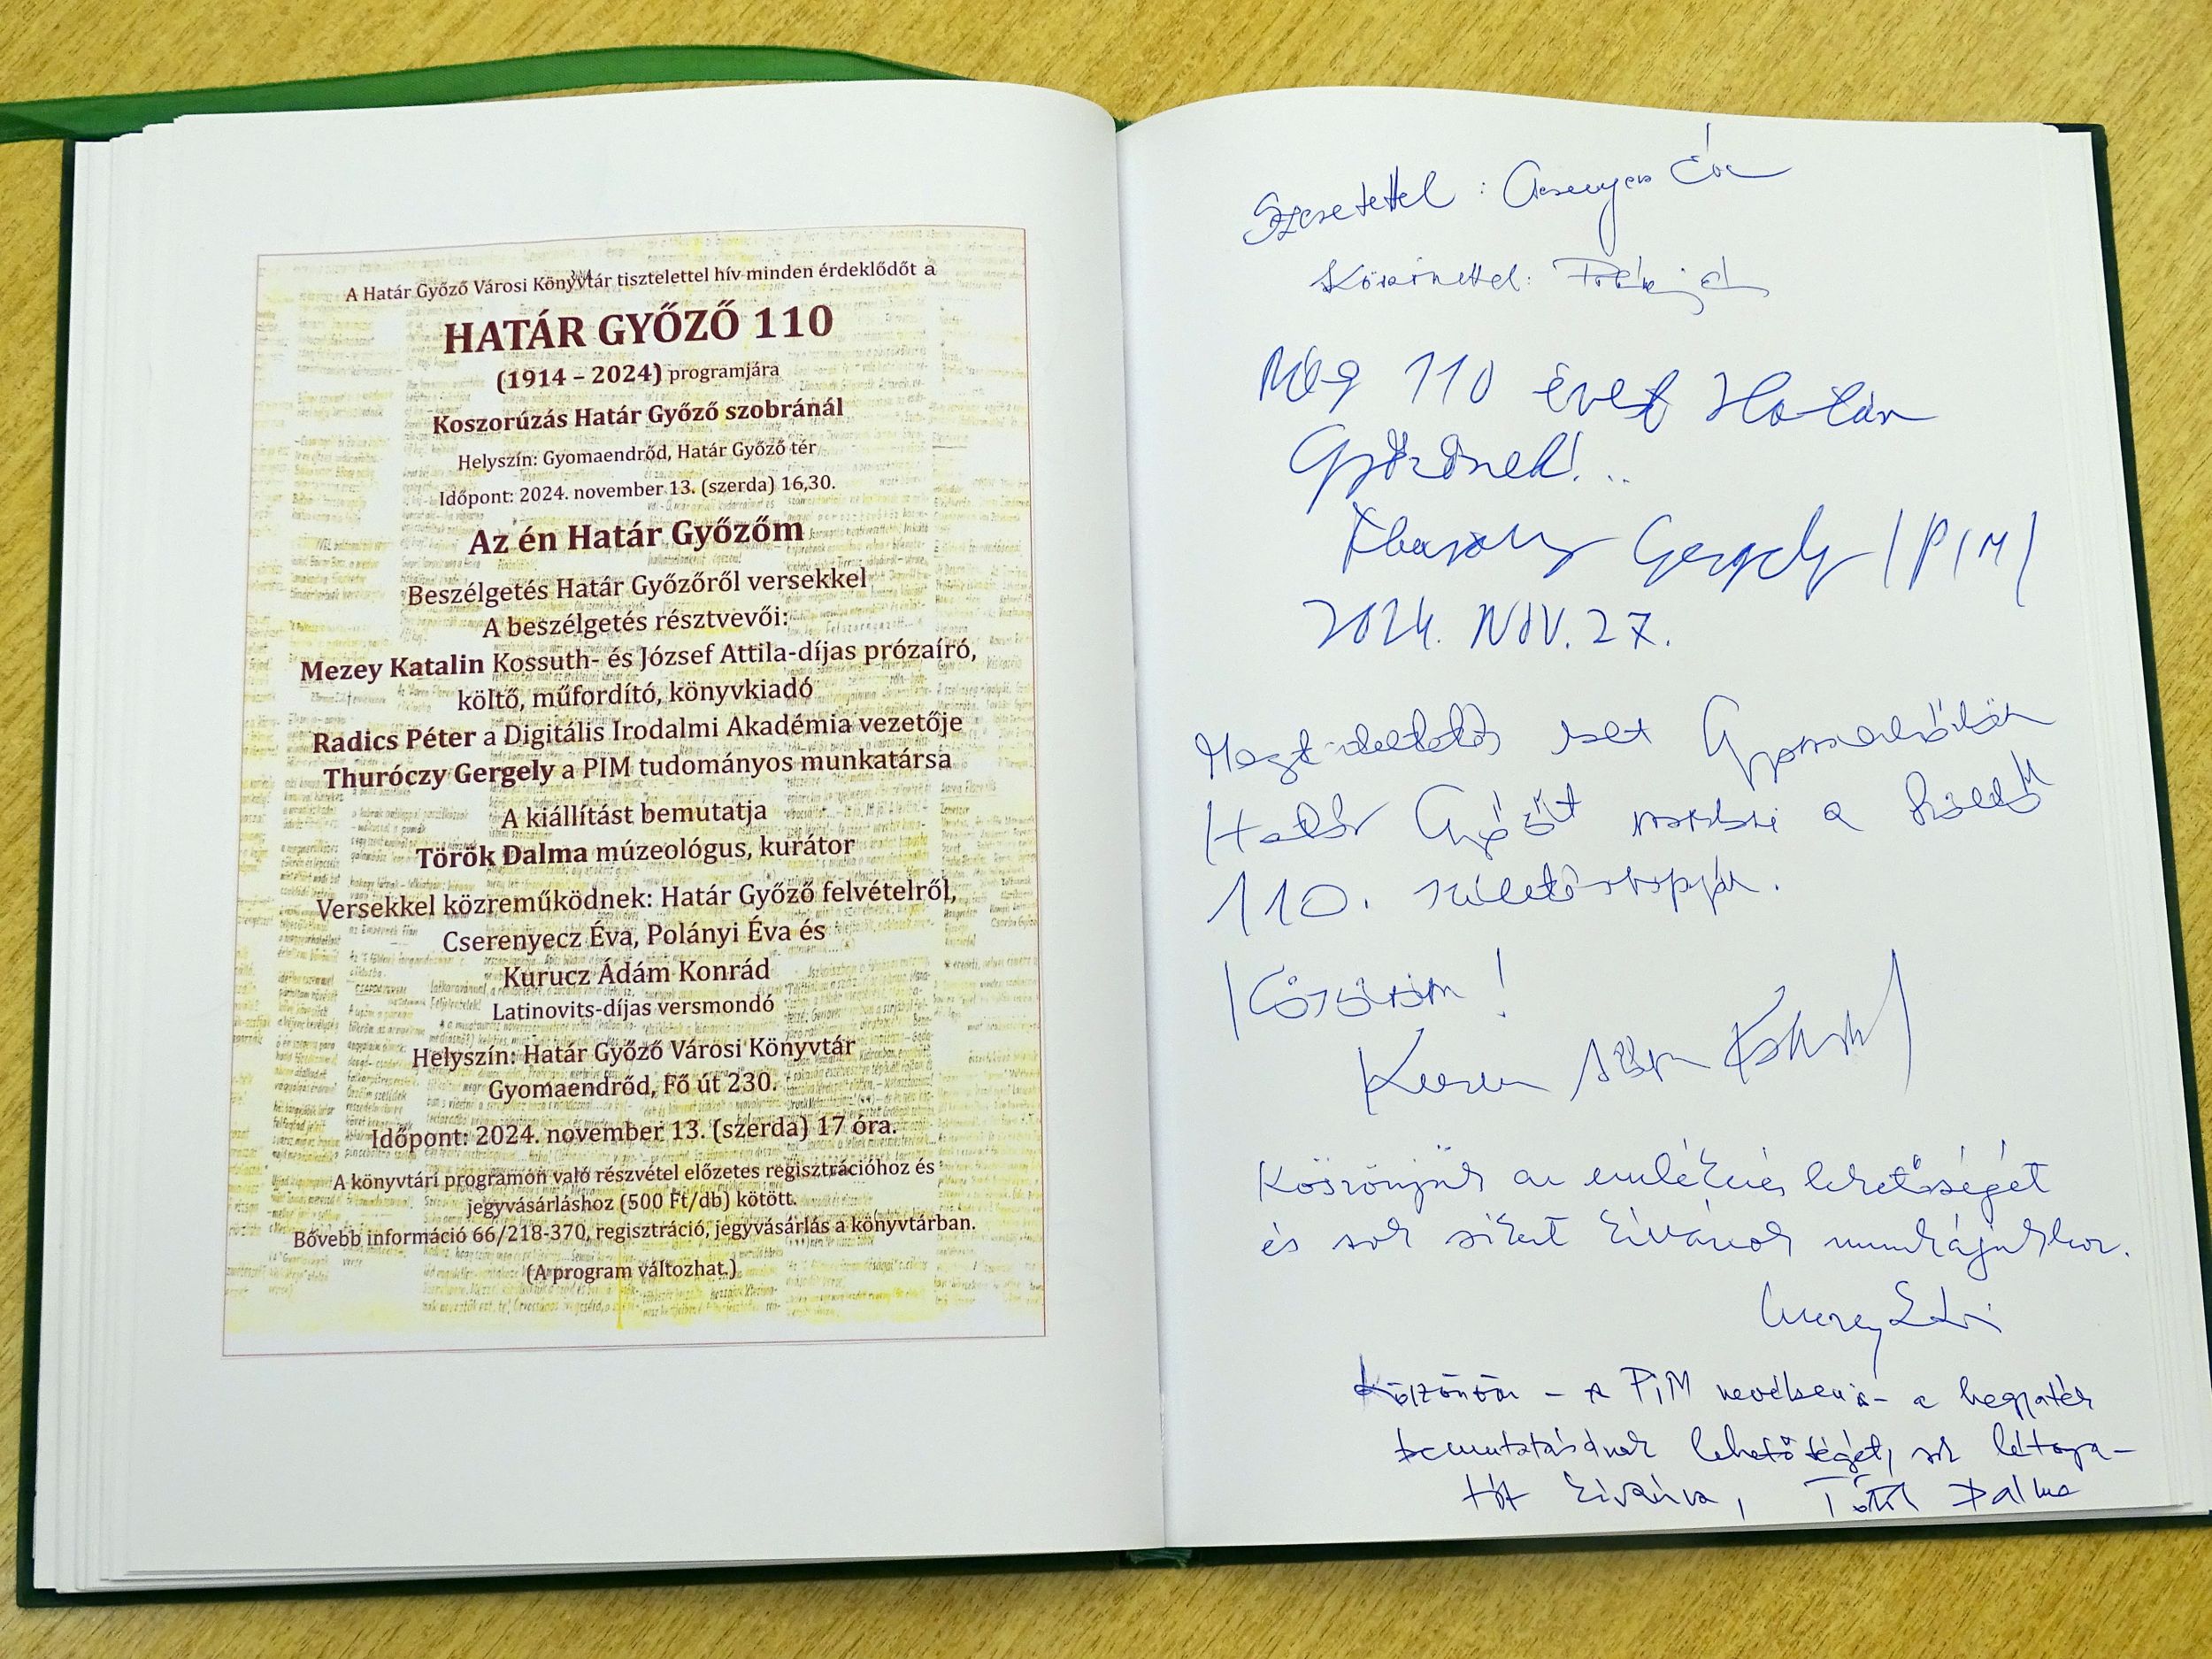 A Határ Győző Városi Könyvtár tisztelettel hív minden érdeklődőt a
HATÁR GYŐZŐ 110
(1914 – 2024) programjára
Koszorúzás Határ Győző szobránál
Helyszín: Gyomaendrőd, Határ Győző tér
Időpont: 2024. november 13. (szerda) 16,30.
Az én Határ Győzőm
Beszélgetés Határ Győzőről versekkel
A beszélgetés résztvevői:
Mezey Katalin Kossuth- és József Attila-díjas prózaíró,
költő, műfordító, könyvkiadó
Radics Péter a Digitális Irodalmi Akadémia vezetője
Thuróczy Gergely a PIM tudományos munkatársa
A kiállítást bemutatja
Török Dalma múzeológus, kurátor
Versekkel közreműködnek: Határ Győző felvételről,
Cserenyecz Éva, Polányi Éva és
Kurucz Ádám Konrád
Latinovits-díjas versmondó
Helyszín: Határ Győző Városi Könyvtár
Gyomaendrőd, Fő út 230.
Időpont: 2024. november 13. (szerda) 17 óra.
A könyvtári programon való részvétel előzetes regisztrációhoz és
jegyvásárláshoz (500 Ft/db) kötött.
Bővebb információ 66/218-370, regisztráció, jegyvásárlás a könyvtárban.
(A program változhat.)
Szeretettel: Éva
Köszönettel:
Még 110 évet Határ
Győzőnek!..
Thuróczy Gergely /PIM/
2024. NOV. 27.
Megtiszteltetés Gyomaendrődön
Határ Győzőt a költő
110. születésnapján.
Köszönöm!
Kurucz Ádám Konrád
Köszönjük az emlékezés lehetőségét
és sok sikert kívánok munkájukhoz.
Köszönöm – a PIM nevében is – a hagyaték
bemutatásának lehetőségét, sok látoga-
tót kívánva, Török Dalma